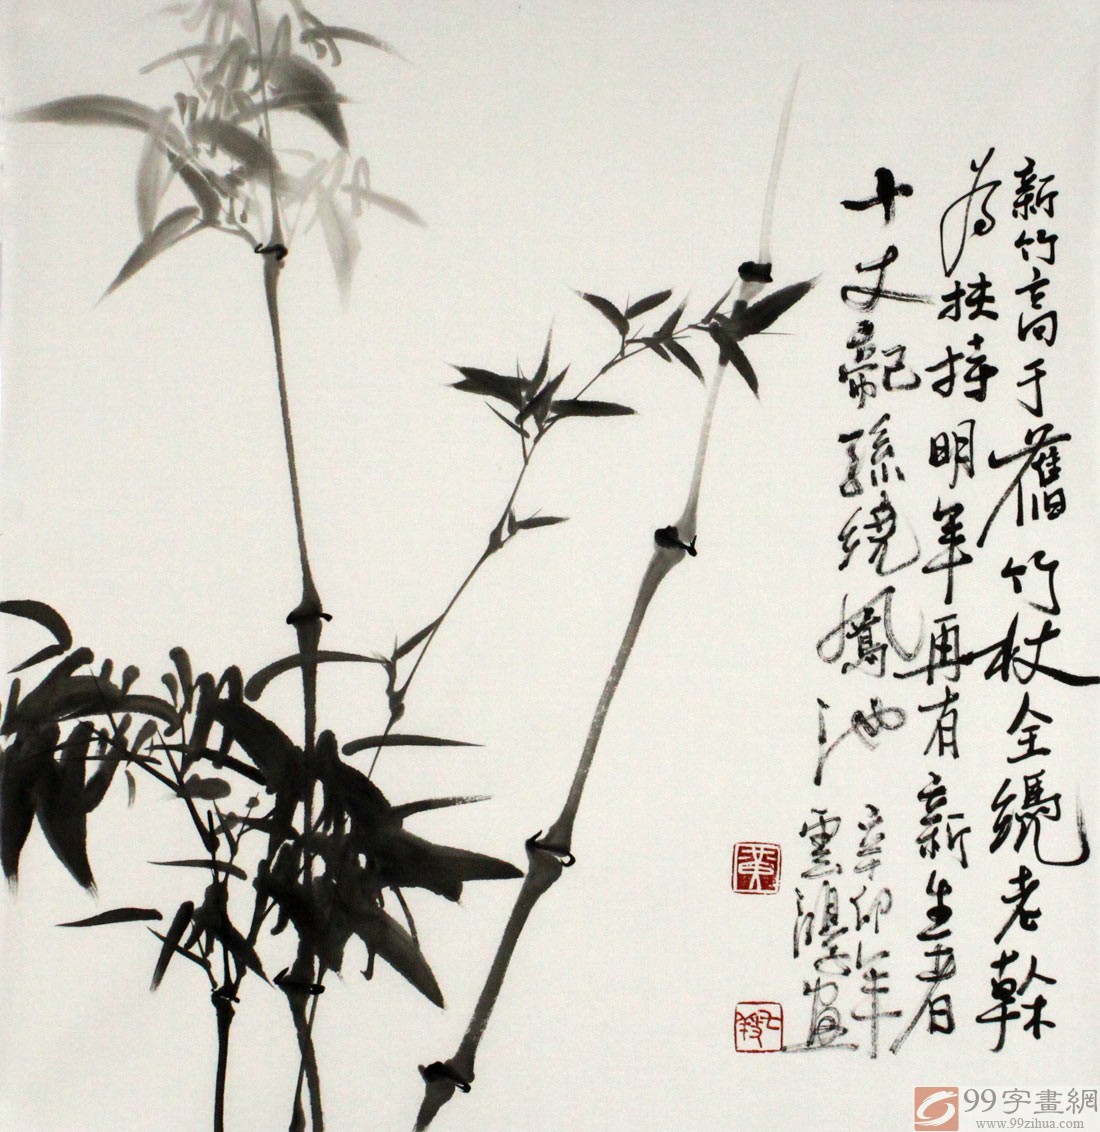 新竹高于舊竹枝全憑老幹
為扶持明年再有新生者
十丈龍孫繞鳳池
辛卯年
雲鴻畫
黄
99字畫網
www.99zihua.com